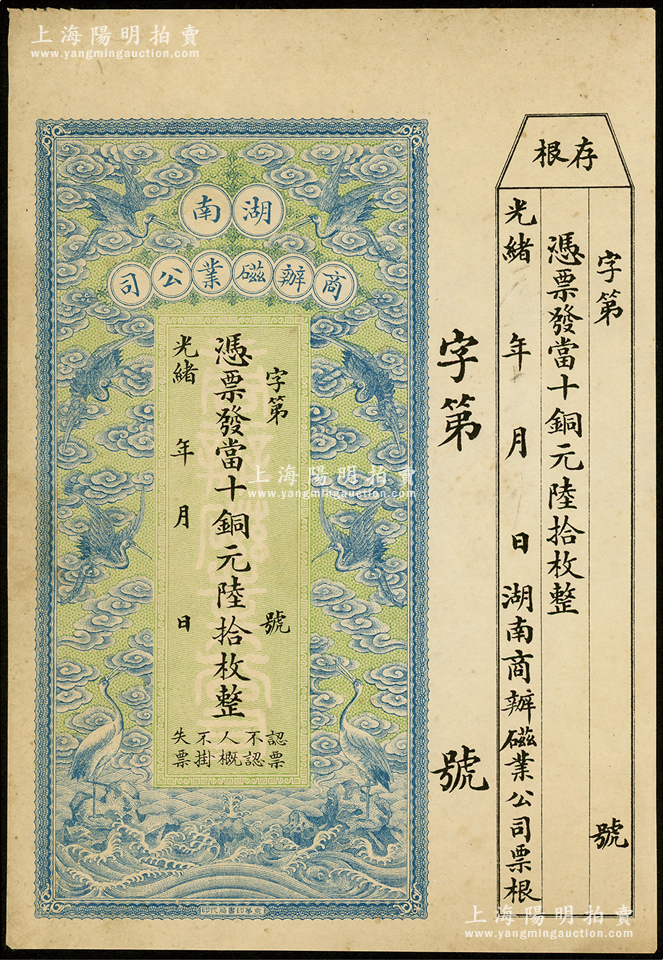 上海陽明拍賣
www.yangmingauction.com
湖南
商辦磁業公司
字第 號
憑票發當十銅元陸拾枚整
光緒 年 月 日
認票不認人概不掛失票
字第 號
存根
字第 號
憑票發當十銅元陸拾枚整
光緒 年 月 日湖南商辦磁業公司票根
上海陽明拍賣
www.yangmingauction.com
上海陽明拍賣
www.yangmingauction.com